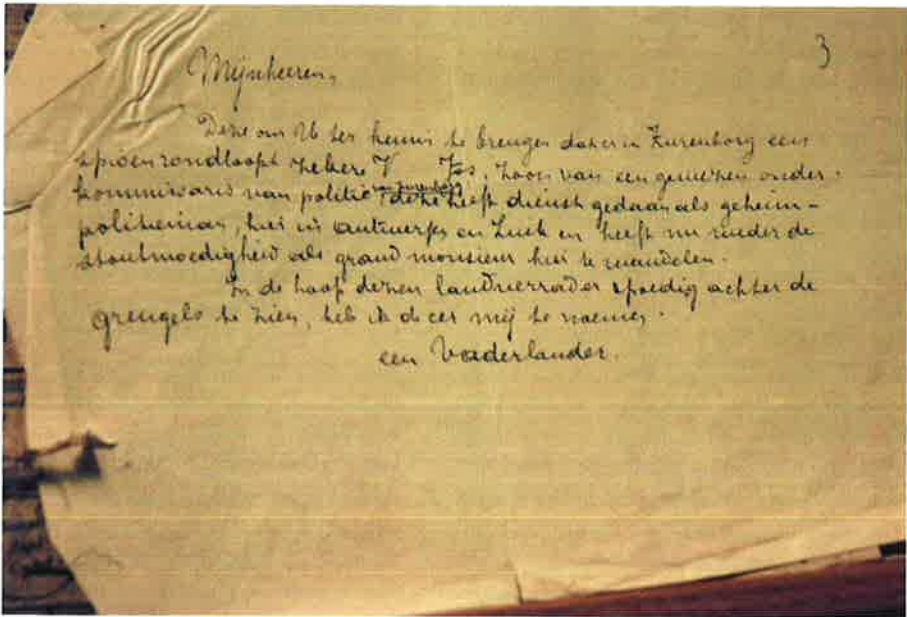 3
Mijnheeren,
Deze om U ter kennis te brengen dat er in Zurenborg een
spioen rondloopt zekere V Jos, zoon van een gewezen onder-
kommissaris van politie deze heeft dienst gedaan als geheim-
politieman, hier in Antwerpen en Luik en heeft nu verder de
stoutmoedigheid als grand monsieur hier te wandelen.
In de hoop dezen landverrader spoedig achter de
grengels te zien, heb ik de eer mij te noemen.
een Vaderlander.